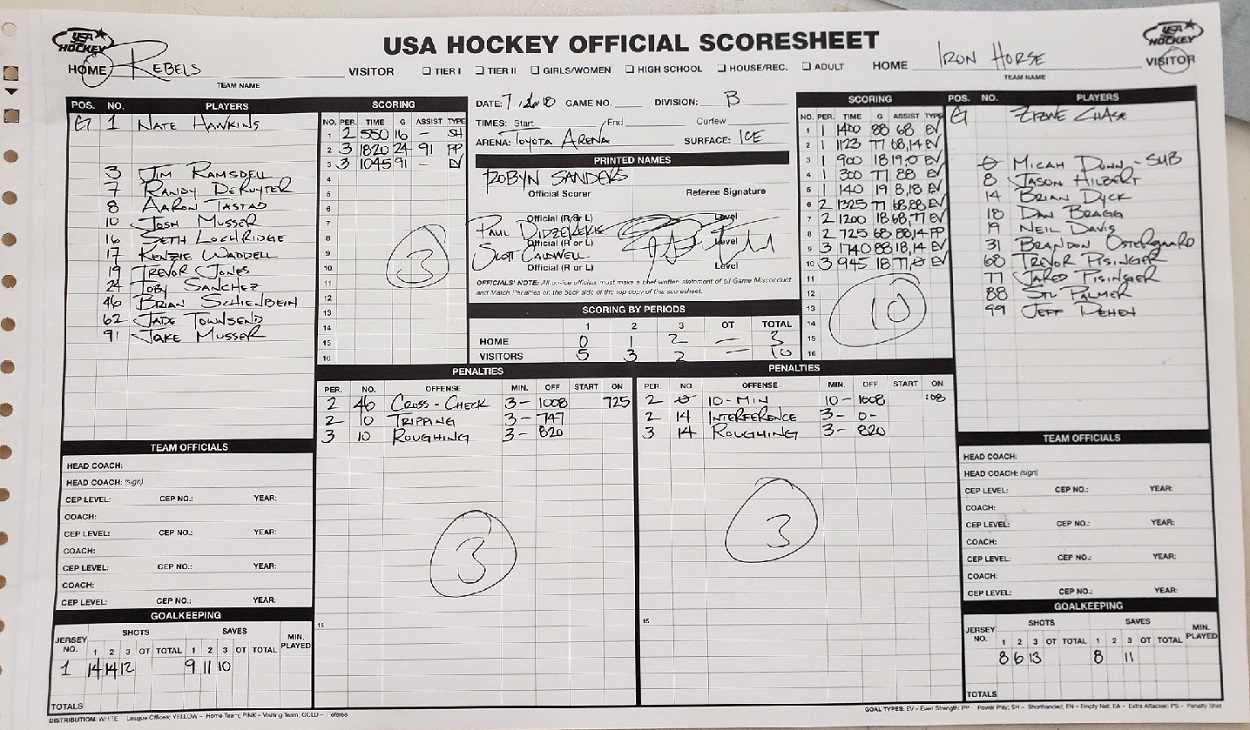 USA HOCKEY OFFICIAL SCORESHEET
USA HOCKEY
USA HOCKEY
HOME REBELS VISITOR
TEAM NAME
☐ TIER I ☐ TIER II ☐ GIRLS/WOMEN ☐ HIGH SCHOOL ☐ HOUSE/REC. ☐ ADULT
HOME IRON HORSE VISITOR
TEAM NAME
POS. NO. PLAYERS
G 1 NATE HAWKINS
3 JIM RAMSDELL
7 RANDY DERUYTER
8 AARON TASTAD
10 JOSH MUSSER
16 SETH LOCHRIDGE
17 KENZIE WADDELL
19 TREVOR JONES
24 TOBY SANCHEZ
46 BRIAN SCHIENBEIN
62 JADE TOWNSEND
91 JAKE MUSSER
SCORING
NO. PER. TIME G ASSIST TYPE
1 2 550 16 - SH
2 3 1820 24 - 91 PP
3 3 1045 91 - EV
4
5
6
7
8
9
10
11
12
13
14
15
16
3
DATE: GAME NO. DIVISION: B
TIMES: Start End Curfew
ARENA: TOYOTA ARENA SURFACE: ICE
PRINTED NAMES
ROBYN SANDERS
Official Scorer Referee Signature
Official (R or L) Level
PAUL
Official (R or L) Level
SCOTT CALDWELL
Official (R or L) Level
OFFICIALS' NOTE: All on-ice officials must make a brief written statement of all Game Misconduct
and Match Penalties on the back side of the top copy of the scoresheet.
SCORING BY PERIODS
1 2 3 OT TOTAL
HOME 0 1 2 - 3
VISITORS 5 3 2 - 10
SCORING
NO. PER. TIME G ASSIST TYPE
1 1 1400 88 68 EV
2 1 1123 77 68,14 EV
3 1 900 18 19,0 EV
4 1 300 77 88 EV
5 1 140 19 8,18 EV
6 2 1325 77 68,88 EV
7 2 1200 18 68,77 EV
8 2 725 68 88,14 PP
9 3 1740 88 18,14 EV
10 3 945 18 77,8 EV
11
12
13
14
15
16
10
POS. NO. PLAYERS
G CHASE
0 MICAH DUNN - SUB
8 JASON HILBERT
14 BRIAN DYCK
18 DAN BRAGG
19 NEIL DAVIS
31 BRANDON OSTERGAARD
68 TREVOR PISINGER
77 JARED PISINGER
88 STU PALMER
99 JEFF DEHEN
PENALTIES
PER. NO. OFFENSE MIN. OFF START ON
2 46 CROSS-CHECK 3- 1008 725
2 10 TRIPPING 3- 747
3 10 ROUGHING 3- 820
3
15
PENALTIES
PER. NO. OFFENSE MIN. OFF START ON
2 0 10-MIN 10- 1008 :08
2 14 INTERFERENCE 3- 0-
3 14 ROUGHING 3- 820
3
15
TEAM OFFICIALS
HEAD COACH:
HEAD COACH: (sign)
CEP LEVEL: CEP NO.: YEAR:
COACH:
CEP LEVEL: CEP NO.: YEAR:
COACH:
CEP LEVEL: CEP NO.: YEAR:
COACH:
CEP LEVEL: CEP NO.: YEAR:
GOALKEEPING
JERSEY NO. SHOTS SAVES MIN. PLAYED
1 2 3 OT TOTAL 1 2 3 OT TOTAL
1 14 14 12 9 11 10
TOTALS
TEAM OFFICIALS
HEAD COACH:
HEAD COACH: (sign)
CEP LEVEL: CEP NO.: YEAR:
COACH:
CEP LEVEL: CEP NO.: YEAR:
COACH:
CEP LEVEL: CEP NO.: YEAR:
COACH:
CEP LEVEL: CEP NO.: YEAR:
GOALKEEPING
JERSEY NO. SHOTS SAVES MIN. PLAYED
1 2 3 OT TOTAL 1 2 3 OT TOTAL
8 6 13 8 11
TOTALS
DISTRIBUTION: WHITE - League Officer; YELLOW - Home Team; PINK - Visiting Team; GOLD - Referee
GOAL TYPES: EV - Even Strength; PP - Power Play; SH - Shorthanded; EN - Empty Net; EA - Extra Attacker; PS - Penalty Shot